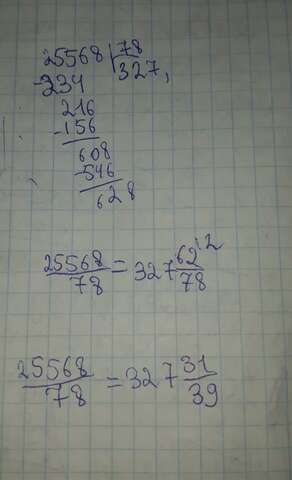 25568 | 78
-234 327,
216
-156
608
-546
628
25568/78 = 327 62/78 12
25568/78 = 327 31/39